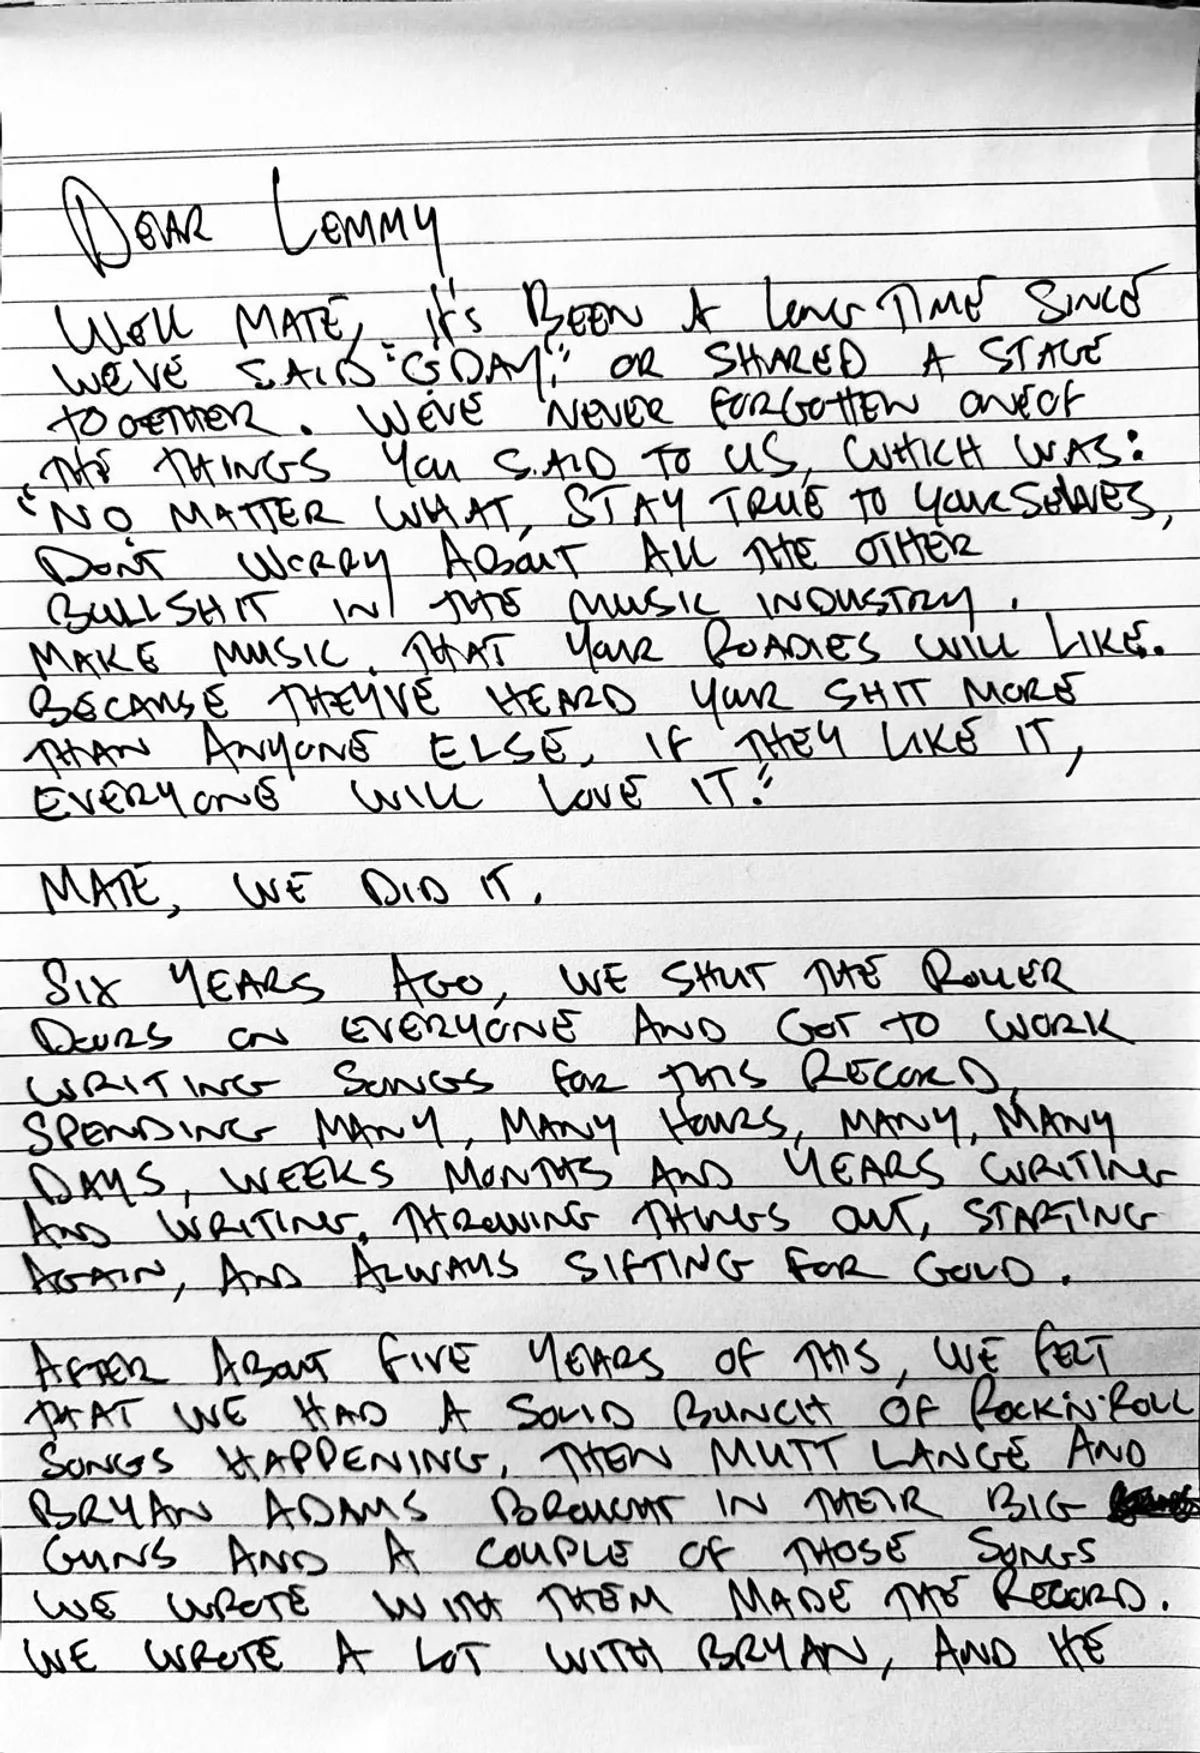 DEAR LEMMY
WELL MATE, IT'S BEEN A LONG TIME SINCE
WE'VE SAID "G'DAY," OR SHARED A STAGE
TOGETHER. WE'VE NEVER FORGOTTEN ONE OF
THE THINGS YOU SAID TO US, WHICH WAS:
"NO MATTER WHAT, STAY TRUE TO YOURSELVES,
DON'T WORRY ABOUT ALL THE OTHER
BULLSHIT IN THE MUSIC INDUSTRY.
MAKE MUSIC THAT YOUR ROADIES WILL LIKE.
BECAUSE THEY'VE HEARD YOUR SHIT MORE
THAN ANYONE ELSE, IF THEY LIKE IT,
EVERYONE WILL LOVE IT."
MATE, WE DID IT.
SIX YEARS AGO, WE SHUT THE ROLLER
DOORS ON EVERYONE AND GOT TO WORK
WRITING SONGS FOR THIS RECORD,
SPENDING MANY, MANY HOURS, MANY, MANY
DAYS, WEEKS MONTHS AND YEARS WRITING
AND WRITING, THROWING THINGS OUT, STARTING
AGAIN, AND ALWAYS SIFTING FOR GOLD.
AFTER ABOUT FIVE YEARS OF THIS, WE FELT
THAT WE HAD A SOLID BUNCH OF ROCK'N'ROLL
SONGS HAPPENING, THEN MUTT LANGE AND
BRYAN ADAMS BROUGHT IN THEIR BIG
GUNS AND A COUPLE OF THOSE SONGS
WE WROTE WITH THEM MADE THE RECORD.
WE WROTE A LOT WITH BRYAN, AND HE